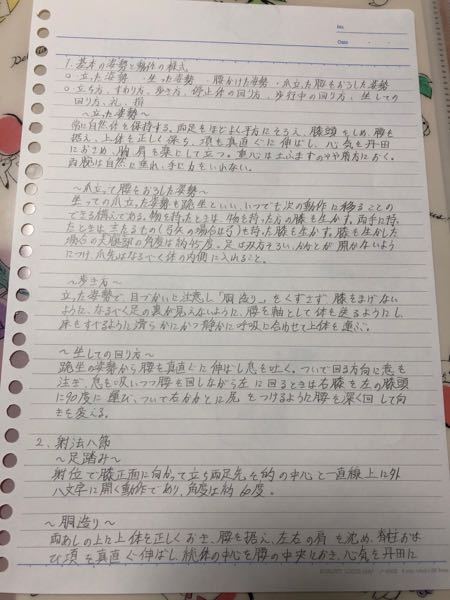 No.
Date
1. 基本の姿勢と動作の様式
○ 立った姿勢・坐った姿勢・腰かけた姿勢・爪立って腰をおろした姿勢
○ 立ち方、すわり方、歩き方、停止体の回り方、歩行中の回り方、坐しての
回り方、礼、揖
～立った姿勢～
常に自然体を保持する。両足をほどよく平行にそろえ、膝頭をしめ、腰を
据え、上体を正しく保ち、項を真直ぐに伸ばし、心気を丹田
におさめ、胸、肩を楽にして立つ。重心は土ふまずのやや前方におく。
両腕は自然に垂れ、手に力をいれない。
～爪立って腰をおろした姿勢～
坐っての爪立った姿勢を跪坐といい、いつでも次の動作に移ることの
できる構えである。物を持ったときは物を持った方の膝を生かす。両手に持
たときは主たるもの(弓矢の場合は弓)を持った膝も生かす。膝も生かした
場合の大腿部の角度は約45度。足は双方そろい、かかとが開かないよう
につけ、爪先はなるべく体の内側に入れること。
～歩き方～
立った姿勢で、目づかいに注意し「胴造り」をくずさず、膝をまげない
ように、なるべく足の裏が見えないように、腰を軸として体を送るようにし、
床をすべるように滑らかにかつ静かに呼吸に合わせて上体を運ぶ。
～坐しての回り方～
跪坐の姿勢から腰を真直ぐに伸ばし息を吐く。ついで回る方向に意を
注ぎ、息を吸いつつ腰を回しながら左に回るときは右膝を左の膝頭
に90度に運び、ついで右かかとに尻をつけるように腰を深く回して向
きを変える。
2. 射法八節
～足踏み～
射位で脇正面に向かって立ち両足先を的の中心と一直線上に外
八文字に開く動作であり、角度は約60度。
～胴造り～
両あしの上に上体を正しくおき、腰を据え、左右の肩を沈め、脊柱およ
び項を真直ぐ伸ばし、総体の中心を腰の中央におき、心気を丹田に